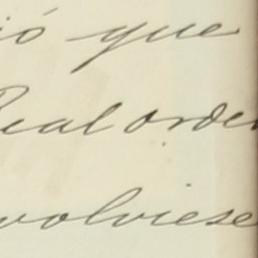 ió que
Real orden
volviese